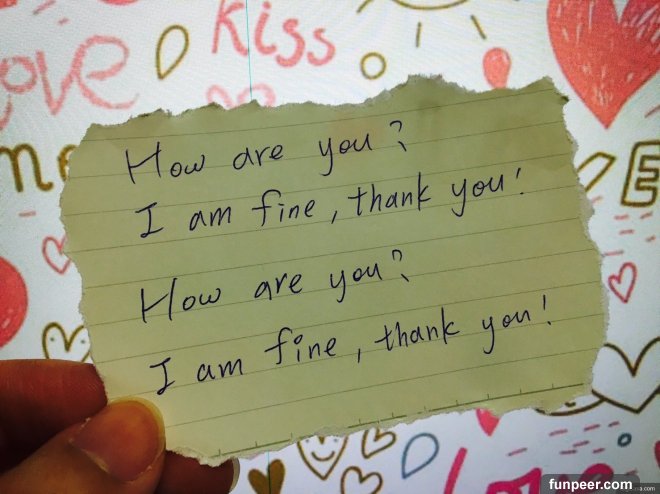 Kiss
Love
How are you?
I am fine, thank you!
How are you?
I am fine, thank you!
funpeer.com